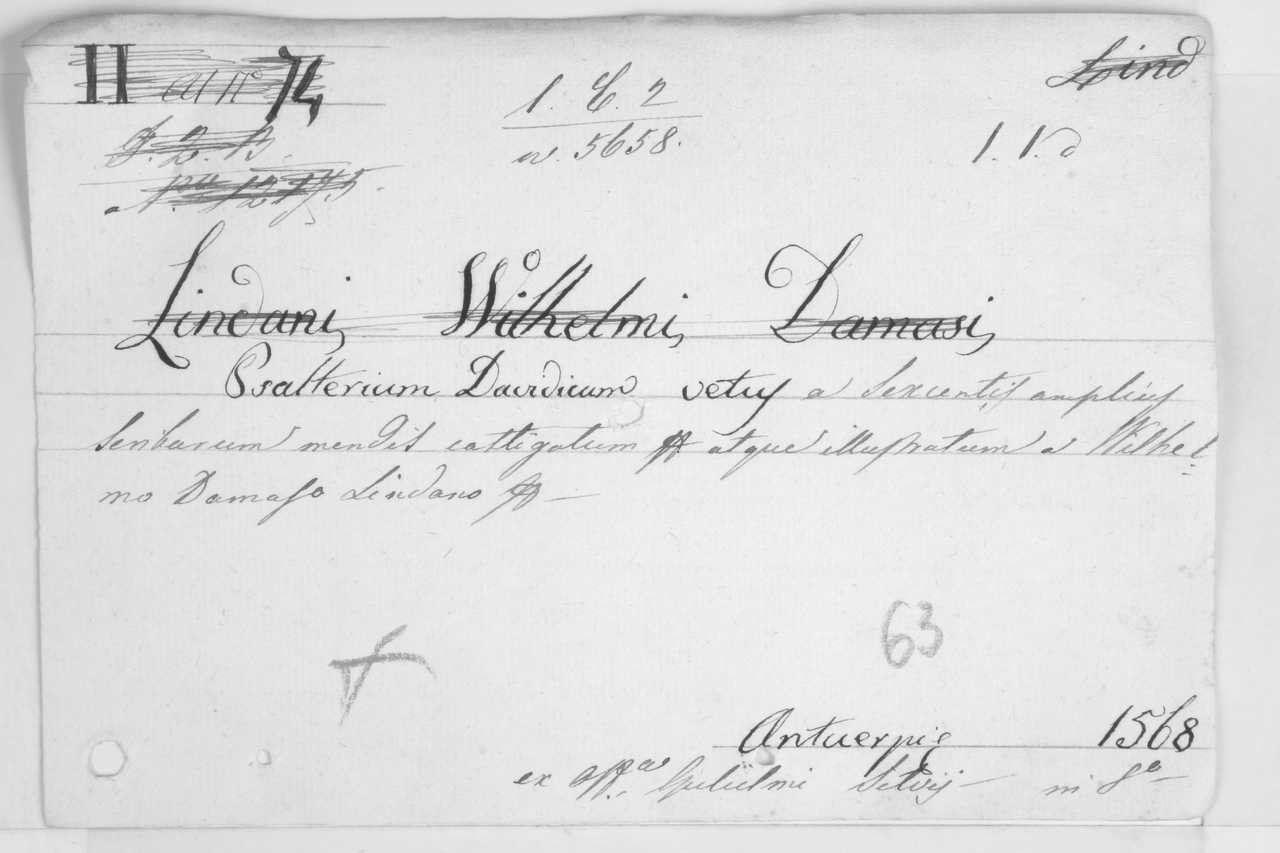 II 74 Lind
1. C. 2
F. 2. B. n. 5658. 1. 1. d
No. 12175.
Lindani, Wilhelmi, Damasi,
Psalterium Davidicum vetus a sexcentis amplius
scribarum mendis castigatum atque illustratum a Wilhel-
mo Damaso Lindano
63
Antuerpię 1568
ex offna. Gulielmi Silvij — in 8o